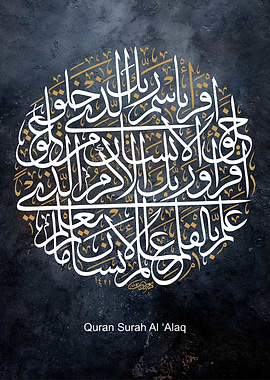 اقرأ باسم ربك الذي خلق
خلق الإنسان من علق
اقرأ وربك الأكرم الذي
علم بالقلم علم الإنسان ما لم يعلم
Quran Surah Al 'Alaq